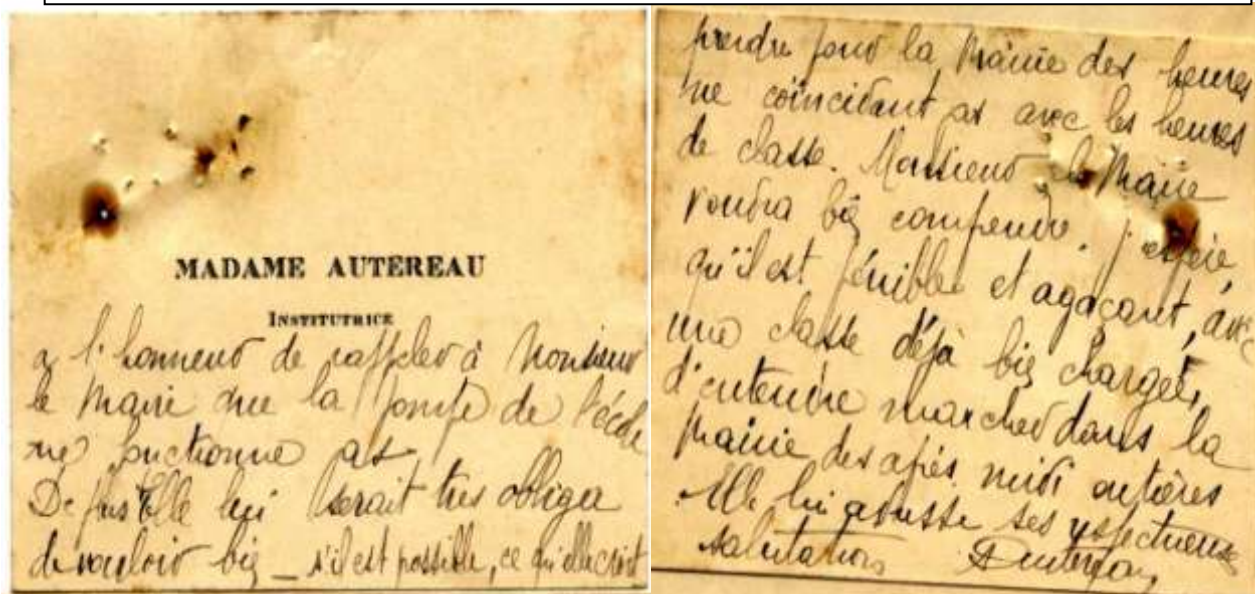 MADAME AUTEREAU
INSTITUTRICE
a l'honneur de rappeler à Monsieur
le Maire que la pompe de l'école
ne fonctionne pas
De plus Elle lui serait très obligée
de vouloir bien _ s'il est possible, ce qu'elle croit
prendre pour la Mairie des heures
ne coïncidant pas avec les heures
de classe. Monsieur le Maire
voudra bien comprendre, j'espère,
qu'il est pénible et agaçant, avec
une classe déjà bien chargée,
d'entendre marcher dans la
mairie des après midi entières
Elle lui adresse ses respectueuses
salutations AAutereau